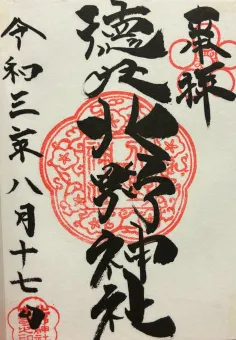 奉拝
徳丸北野神社
令和三年八月十七日